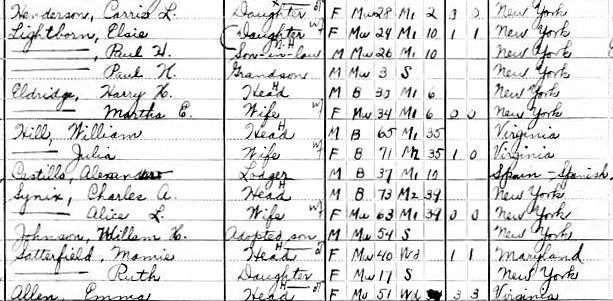 Henderson, Carrie L. Daughter F Mu 28 M1 2 3 0 New York
Lightborn, Elsie Daughter F Mu 24 M1 10 1 1 New York
——, Paul H. Son-in-law M Mu 26 M1 10 New York
—— Paul H. Grandson M Mu 3 S New York
Eldridge, Harry H. Head M B 33 M1 6 New York
—— Martha E. Wife F Mu 34 M1 6 0 0 New York
Hill, William Head M B 65 M1 35 Virginia
—— Julia Wife F B 71 M2 35 1 0 Virginia
Castillo, Lodger M B 37 M1 10 Spain - Spanish
Synix, Charles A. Head M B 73 M2 39 New York
—— Alice L. Wife F Mu 63 M1 39 0 0 New York
Johnson, Willam H. Adopted son M Mu 54 S New York
Satterfield, Mamie Head F Mu 40 Wd 1 1 Maryland
—— Ruth Daughter F Mu 17 S New York
Allen, Emma Head F Mu 51 Wd 3 3 Virginia